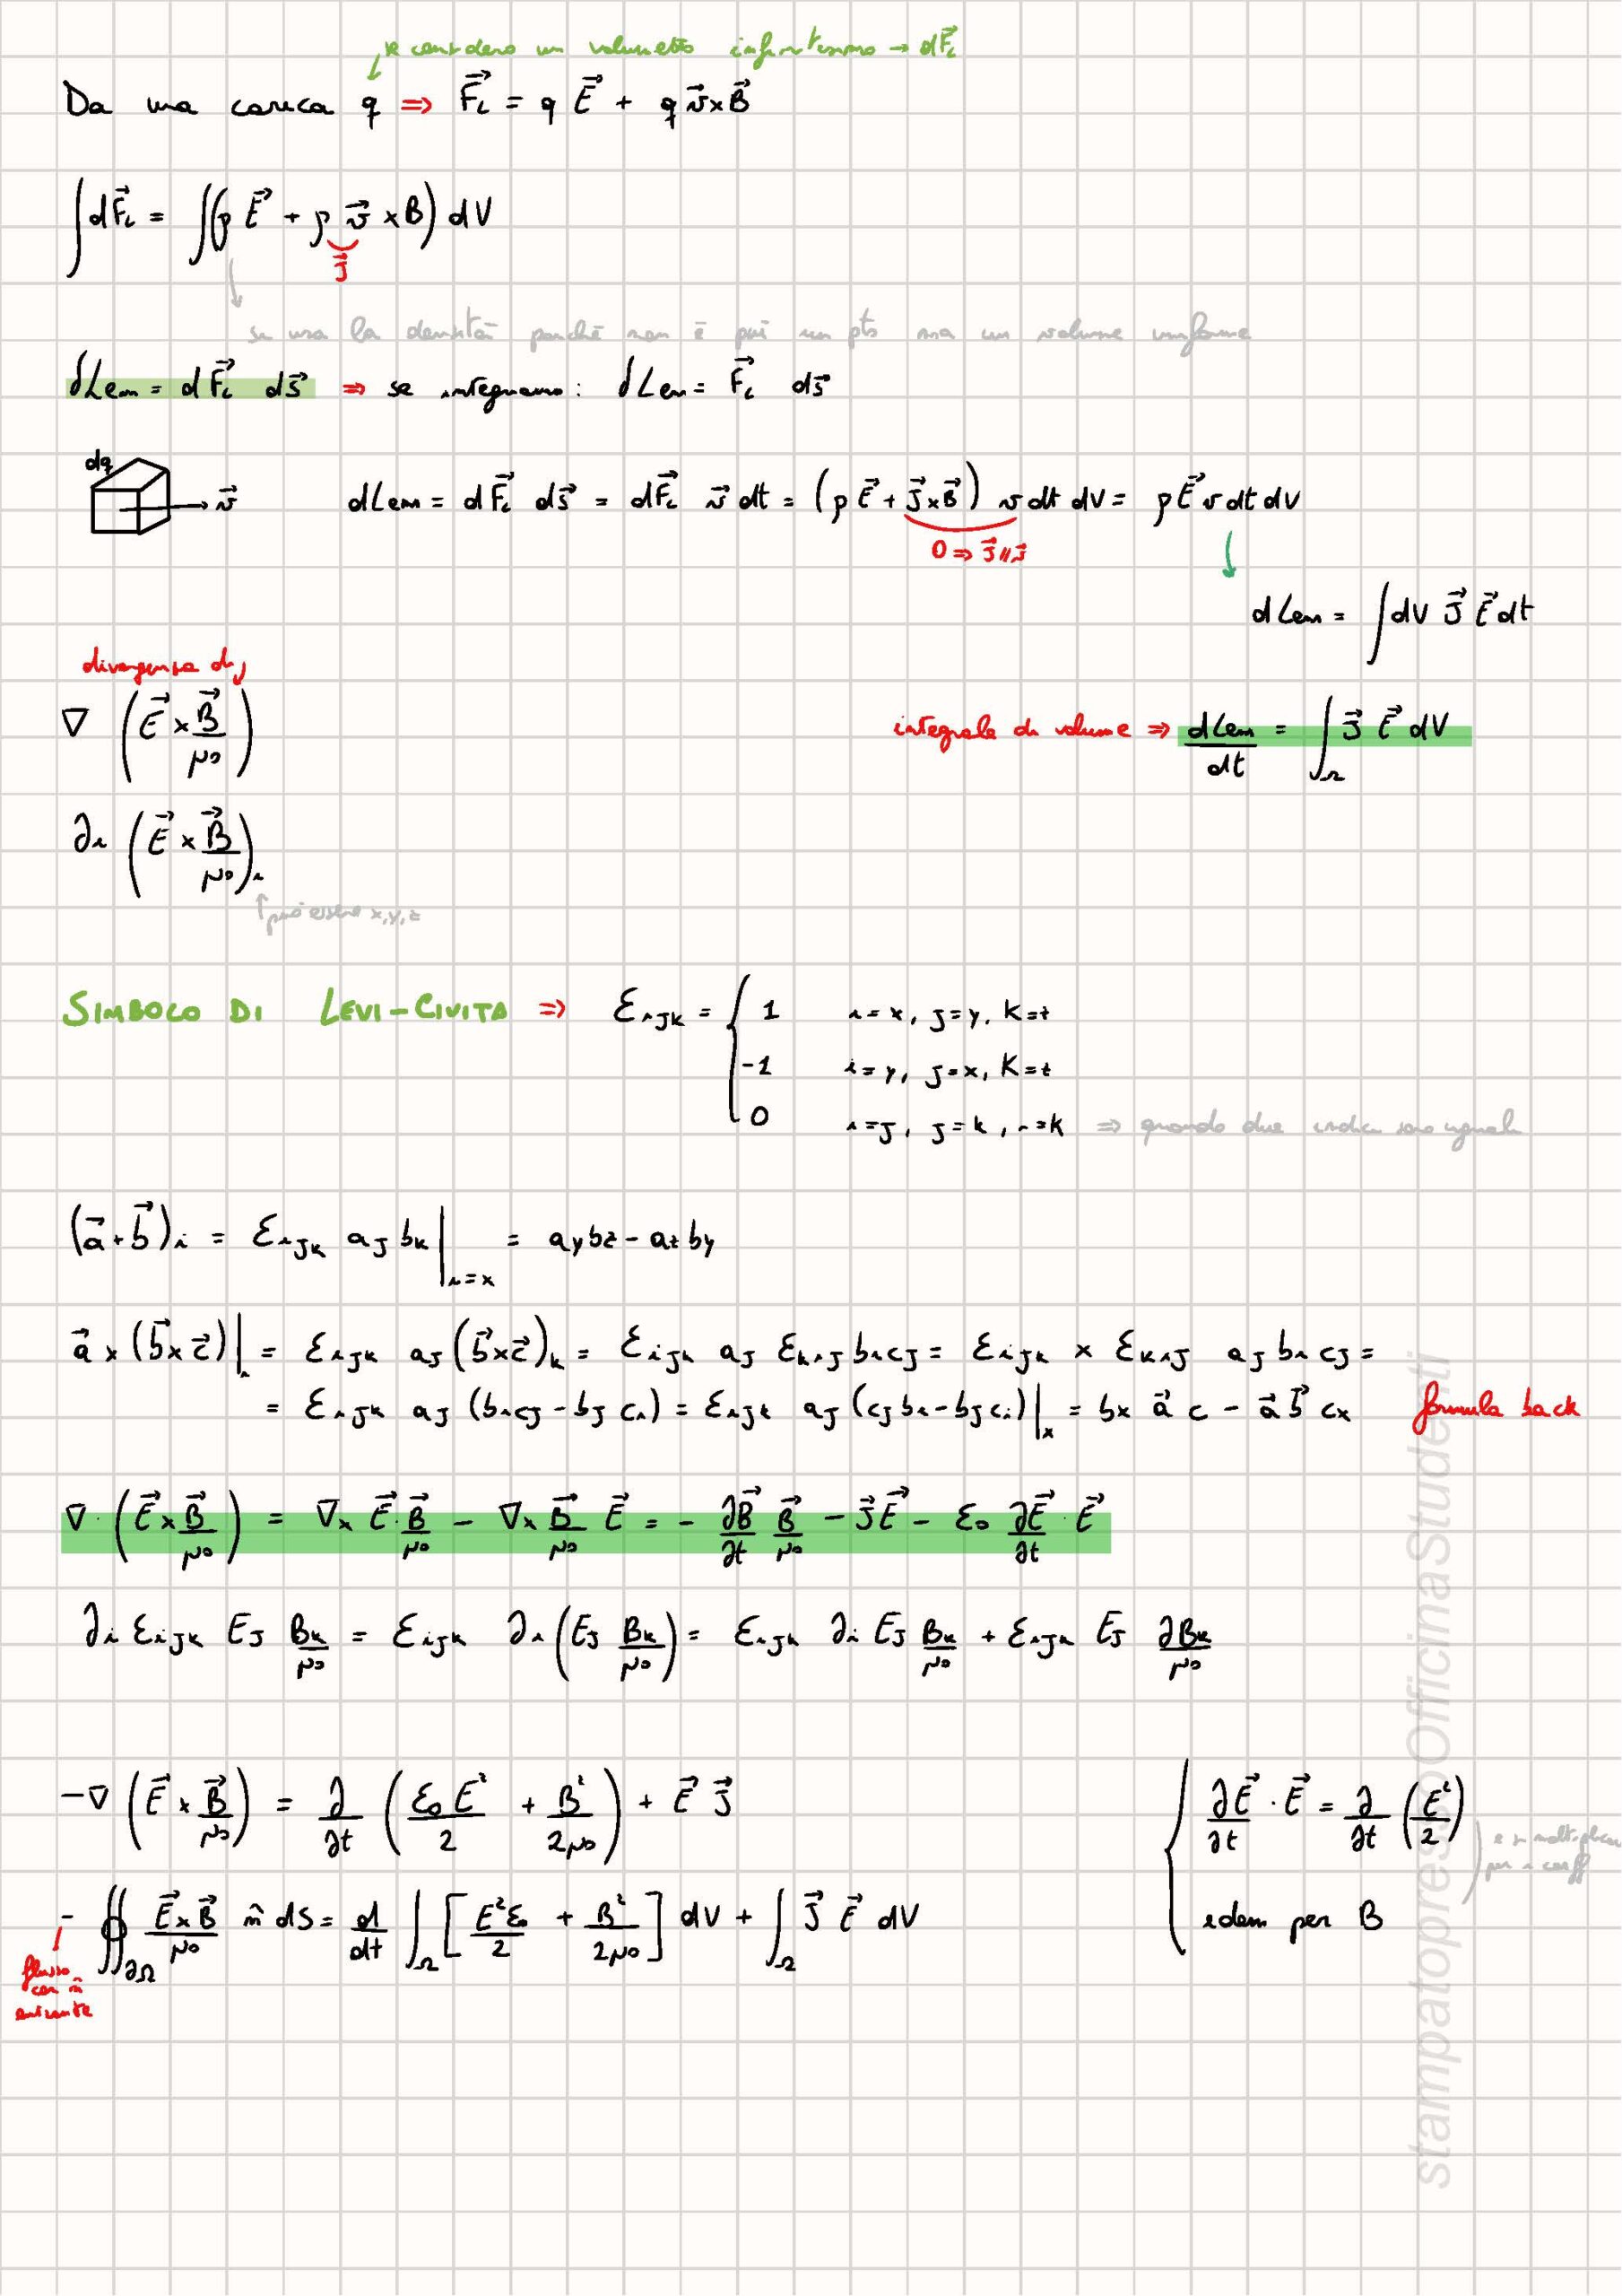 se considero un volumetto infinitesimo → dF⃗L
Da una carica q ⇒ F⃗L = q E⃗ + q v⃗×B⃗
∫dF⃗L = ∫(ρ E⃗ + ρ v⃗ ×B) dV
J⃗
se usa la densità perché non è più un pto ma un volume uniforme
δLem = dF⃗L ds⃗ ⇒ se integriamo: δLem = F⃗L ds⃗
dq → v⃗ dLem = dF⃗L ds⃗ = dF⃗L v⃗ dt = (ρ E⃗ + J⃗×B⃗) v dt dV = ρE⃗ v dt dV
0 ⇒ J⃗ // v⃗
dLem = ∫dV J⃗ E⃗ dt
divergenza di
∇ (E⃗ × B⃗/μ0)
integrale di volume ⇒ dLem/dt = ∫Ω J⃗ E⃗ dV
∂i (E⃗ × B⃗/μ0)i
↑ può essere x,y,z
SIMBOLO DI LEVI-CIVITA ⇒ εijk = { 1 i=x, j=y, k=z
-1 i=y, j=x, K=z
0 i=j, j=k, i=k ⇒ quando due indici sono uguali
(a⃗·b⃗)i = εijk aj bk |i=x = aybz - azby
a⃗ × (b⃗×c⃗)|i = εijk aj (b⃗×c⃗)k = εijk aj εkij bicj = εijk × εkij aj bi cj =
= εijk aj (bicj - bj ci) = εijk aj (cj bi - bj ci)|x = bx a⃗ c - a⃗ b⃗ cx formula back
∇· (E⃗×B⃗/μ0) = ∇× E⃗·B⃗/μ0 - ∇× B⃗/μ0 E⃗ = - ∂B⃗/∂t B⃗/μ0 - J⃗E⃗ - ε0 ∂E⃗/∂t · E⃗
∂i εijk Ej Bk/μ0 = εijk ∂i (Ej Bk/μ0) = εijk ∂i Ej Bk/μ0 + εijk Ej ∂Bk/μ0
-∇ (E⃗ × B⃗/μ0) = ∂/∂t (ε0 E²/2 + B²/2μ0) + E⃗ J⃗
{ ∂E⃗/∂t · E⃗ = ∂/∂t (E²/2)
e si moltiplica
per i coeff
idem per B
- ∯∂Ω E⃗×B⃗/μ0 n̂ dS = d/dt ∫Ω [E²ε0/2 + B²/2μ0] dV + ∫Ω J⃗ E⃗ dV
flusso
con n̂
entrante
stampatopressoOfficinaStudenti